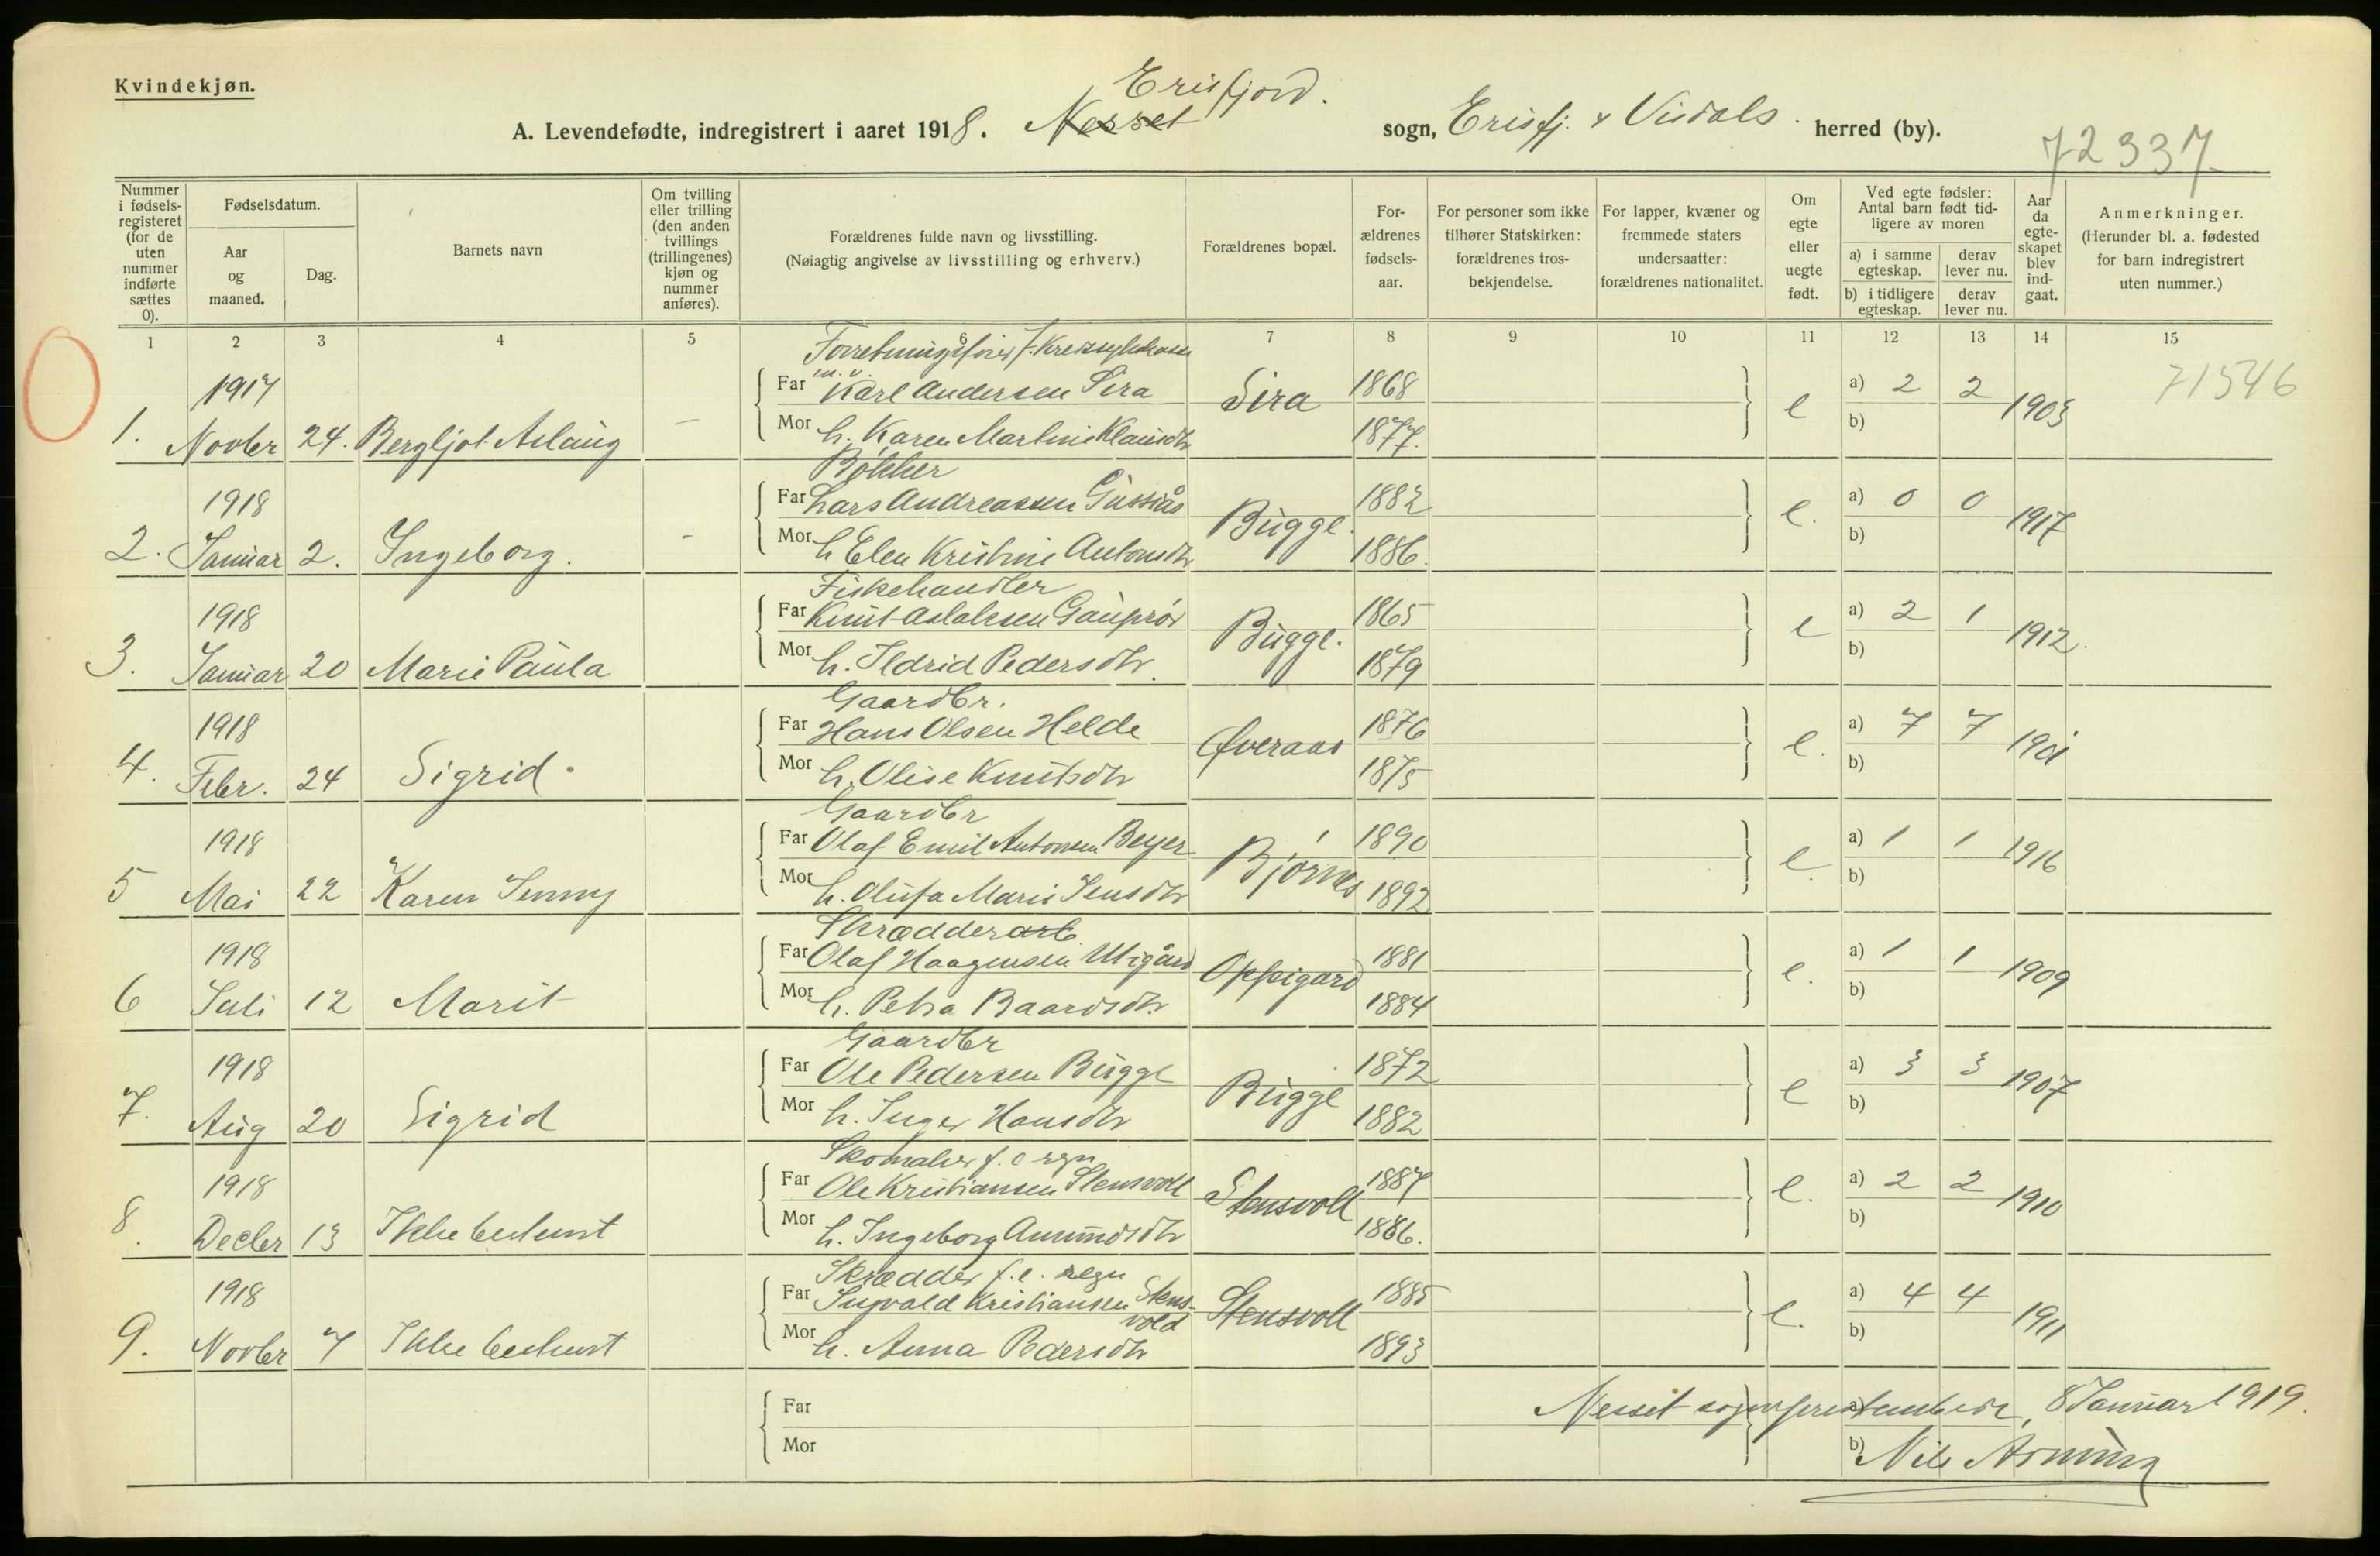 Kvindekjøn.
A. Levendefødte, indregistrert i aaret 1918. Nesset Erisfjord. sogn, Erisfj. & Visdals. herred (by).
72337
Nummer i fødselsregisteret (for de uten nummer indførte sættes 0).
Fødselsdatum.
Aar og maaned.
Dag.
Barnets navn
Om tvilling eller trilling (den anden tvillings (trillingenes) kjøn og nummer anføres).
Forældrenes fulde navn og livsstilling.
(Nøiagtig angivelse av livsstilling og erhverv.)
Forældrenes bopæl.
For-
ældrenes
fødsels-
aar.
For personer som ikke
tilhører Statskirken:
forældrenes tros-
bekjendelse.
For lapper, kvæner og
fremmede staters
undersaatter:
forældrenes nationalitet.
Om
egte
eller
uegte
født.
Ved egte fødsler:
Antal barn født tid-
ligere av moren
a) i samme egteskap.
derav lever nu.
b) i tidligere egteskap.
derav lever nu.
Aar da egte-skapet blev ind-gaat.
Anmerkninger.
(Herunder bl. a. fødested
for barn indregistrert
uten nummer.)
1 2 3 4 5 6 7 8 9 10 11 12 13 14 15
1. 1917 Novbr 24. Bergljot Aslaug –
Forretningsfører f. Kredssykekasse m. v.
Far Karl Andersen Sira
Mor h. Karen Martine Klausdtr
Sira 1868 1877. e a) 2 2 b) 1903 71546
2. 1918 Januar 2. Ingeborg. –
Bøkker
Far Lars Andreassen Gussiås
Mor h Elen Kristine Antonsdtr
Bugge. 1882 1886. e. a) 0 0 b) 1917
3. 1918 Januar 20 Marie Paula
Fiskehandler
Far Knut Aslaksen Gauprør
Mor h. Ildrid Pedersdtr.
Bugge. 1865 1879 e a) 2 1 b) 1912.
4. 1918 Febr. 24 Sigrid.
Gaardbr.
Far Hans Olsen Helde
Mor h. Olise Knutsdtr
Øveraas 1876 1875 e. a) 7 7 b) 1901
5 1918 Mai 22 Karen Jenny
Gaardbr
Far Olaf Emil Antonsen Beyer
Mor h. Olufa Marie Jensdtr
Bjørnes 1890 1892 e. a) 1 1 b) 1916
6 1918 Juli 12 Marit
Skrædderarb.
Far Olaf Haagensen Utigård
Mor h. Petra Baardsdtr.
Oppigard 1881 1884 e. a) 1 1 b) 1909
7. 1918 Aug 20 Sigrid
Gaardbr
Far Ole Pedersen Bugge
Mor h. Inger Hansdtr
Bugge 1872 1882 e a) 3 3 b) 1907
8. 1918 Decbr 13 Ikke bestemt
Skomaker f. e regn
Far Ole Kristiansen Stensvold
Mor h. Ingeborg Amundsdtr
Stensvold 1887 1886. e. a) 2 2 b) 1910
9. 1918 Novbr 7 Ikke bestemt
Skrædder f. e. regn
Far Ingvald Kristiansen Stensvold
Mor h. Anna Pedersdtr
Stensvold 1885 1893 e. a) 4 4 b) 1911
Far
Mor
a)
b)
Nesset sogneprestembede, 8 Januar 1919.
Nils